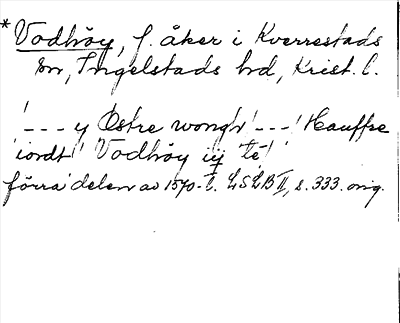 *Vodhöy, f. åker i Kverrestads
sn, Ingelstads hd, Krist. l.
'--- y Østre wongh' ---' Hauffre
iordt' 'Vodhöy iij te'
förra delen av 1570-t. LSLB II, s. 333. orig.